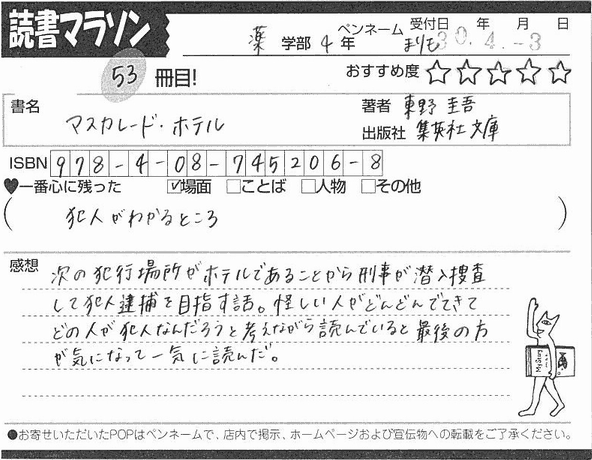 読書マラソン
薬 学部 4 年 ペンネーム まりも 受付日 年 月 日
30.4.-3
53 冊目!
おすすめ度 ☆☆☆☆☆
書名 マスカレード・ホテル
著者 東野 圭吾
出版社 集英社文庫
ISBN 978-4-08-745206-8
♥一番心に残った ☑場面 □ことば □人物 □その他
( 犯人がわかるところ )
感想
次の犯行場所がホテルであることから刑事が潜入捜査
して犯人逮捕を目指す話。怪しい人がどんどんでてきて
どの人が犯人なんだろうと考えながら読んでいると最後の方
が気になって一気に読んだ。
●お寄せいただいたPOPはペンネームで、店内で掲示、ホームページおよび宣伝物への転載をご了承ください。